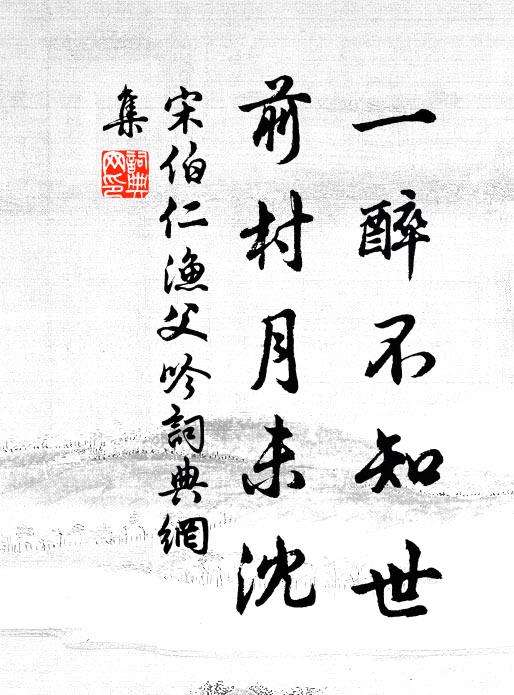 一醉不知世
前村月未沈
宋伯仁漁父吟詞典網
集
詞典
网印